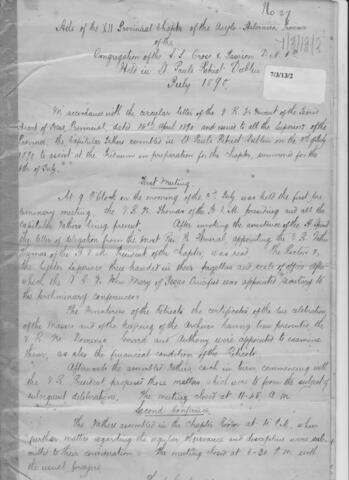 No 27
Acts of the XII Provincial Chapter of the Anglo-Hibernian Province
of the
Congregation of the S.S. Cross & Passion D.N.J.C.
Held in St Pauls Retreat Dublin
July 1890
7/3/13/2
In accordance with the circular letter of the V.R. Fr Vincent of the Sacred
Heart of Jesus, Provincial, dated 16th April 1890 and issued to all the Superiors of the
Province, the Capitular Fathers assembled in St Pauls Retreat Dublin on the
1890 to assist at the Triduum in preparation for the Chapter, summoned for the
8th of July.
First Meeting
At 9 O'clock on the morning of the July was held the first pre-
liminary meeting, the V.R. Fr Thomas of the presiding and all the
Capitular Fathers being present. After invoking the assistance of the H. Spirit
the letter of delegation from the most Rev Fr General, appointing the V.R. Father
Thomas of the President of the Chapter, was read. The Rectors &
the Superiors then handed in their faculties and seals of office after
which the V.R. Fr John Mary of Jesus Crucified was appointed Secretary to
the preliminary conferences.
The inventories of the Retreats, the certificates of the due celebration
of the Masses and of the keeping of the Archives having been presented the
V.R. Frs Dominic and Anthony were appointed to examine
them, as also the financial condition of the Retreats.
Afterwards the assembled Fathers, each in turn commencing with
the V.R. President proposed those matters which were to form the subject of
subsequent deliberations. The meeting closed at 11-45 A.M.
Second Conference
The Fathers assembled in the Chapter Room at when
further matter regarding the regular Observance and discipline were sub-
mitted to their consideration. The meeting closed at 6-30 P.M. with
the usual prayers.